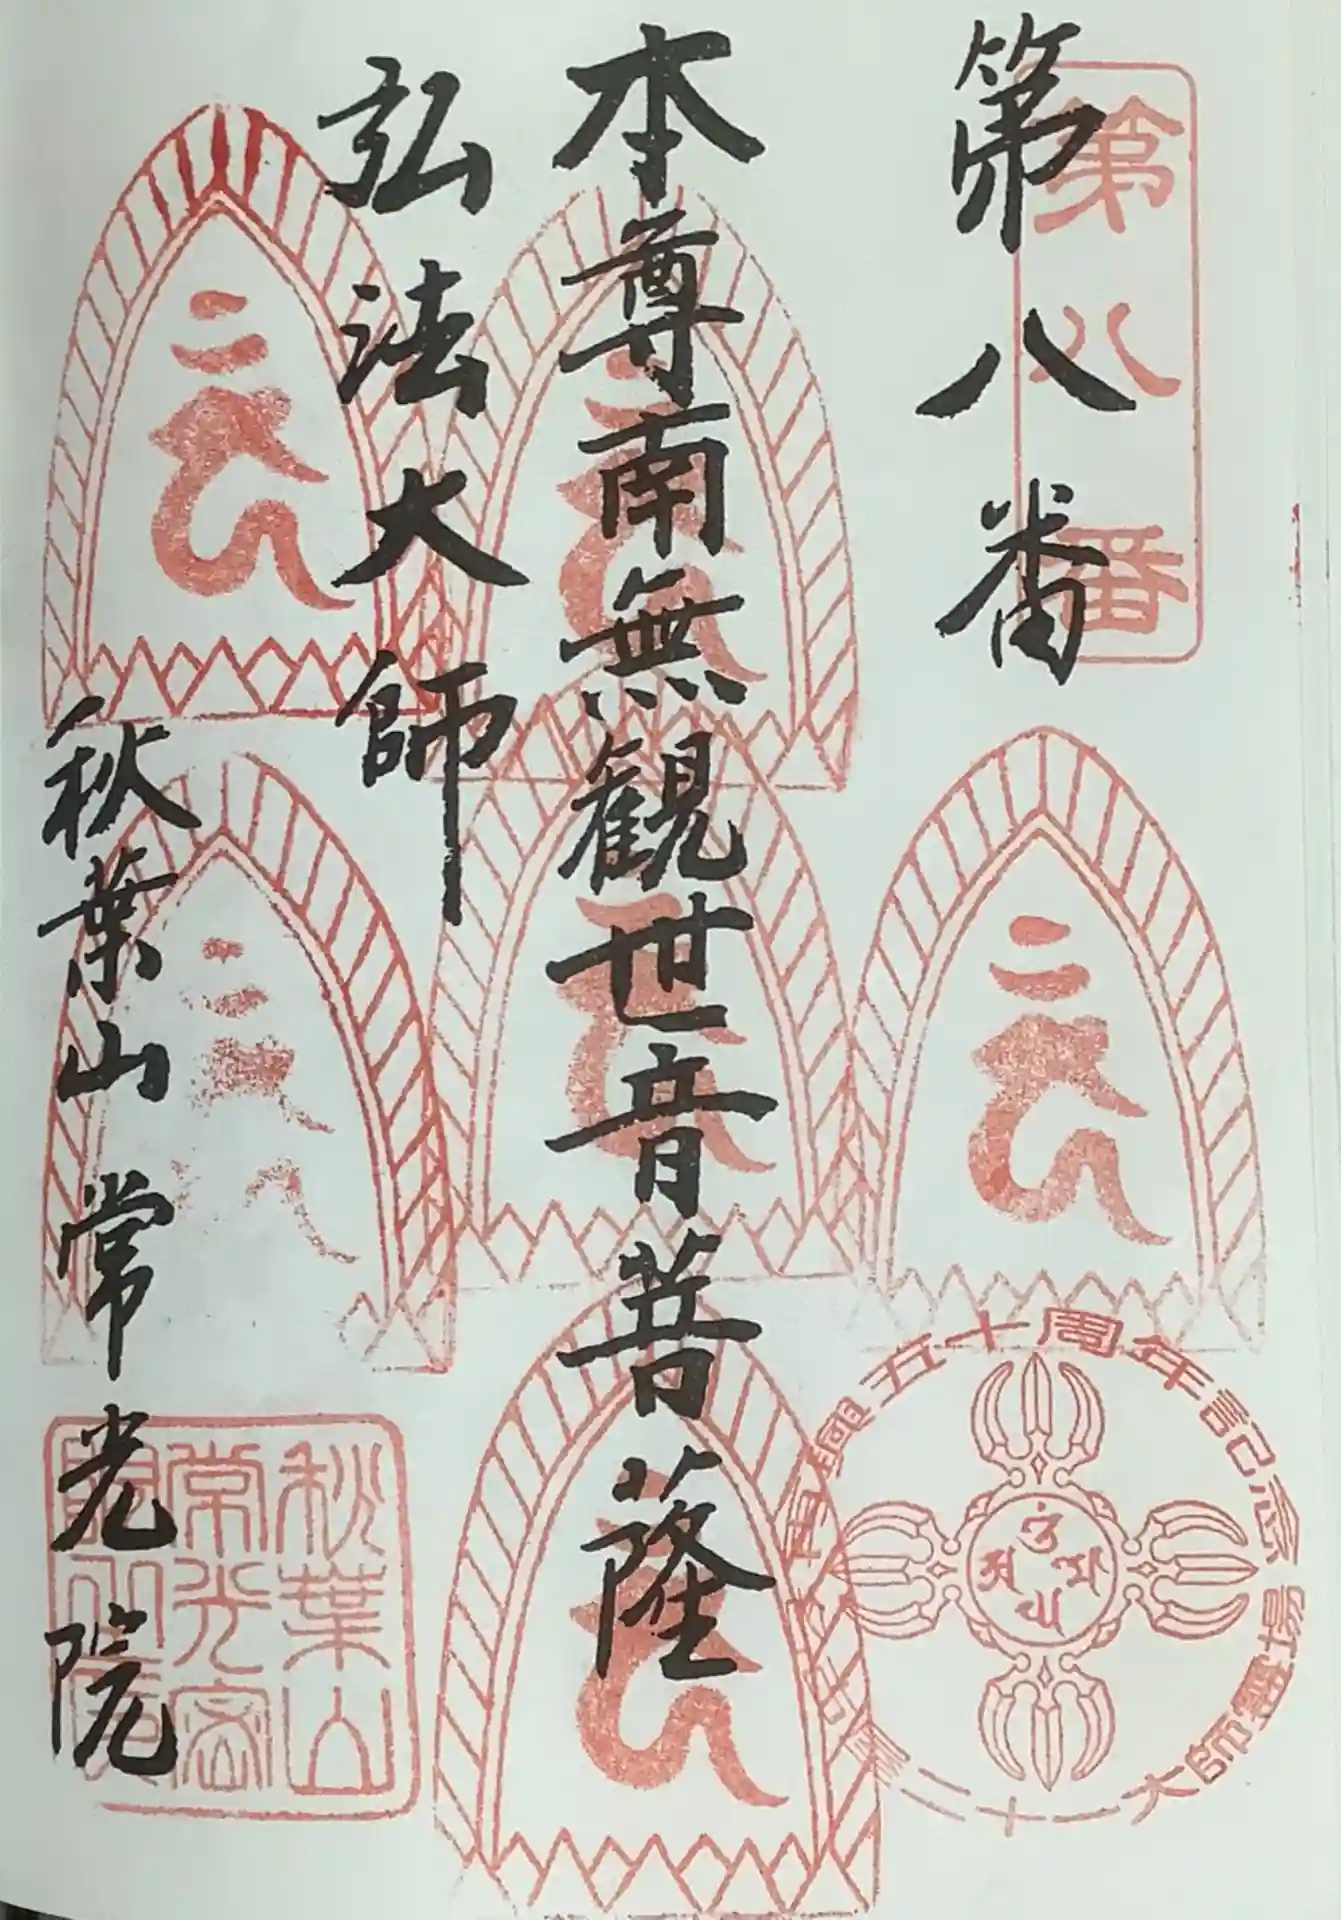 第八番
第八番
本尊南無観世音菩薩
弘法大師
秋葉山常光院
秋葉山
常光密
興五十周年記念
大師霊場